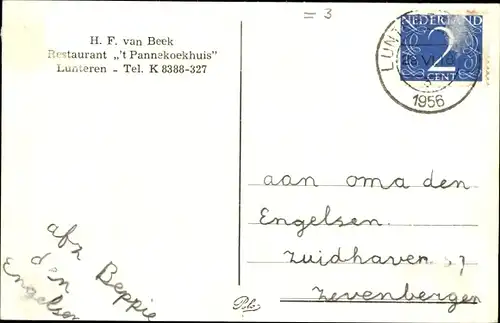 = 3
H. F. van Beek
Restaurant „'t Pannekoekhuis”
Lunteren - Tel. K 8388-327
NEDERLAND
2
CENT
LUNT
1956
aan oma den
Engelsen.
Zuidhaven
Zevenbergen
afz Beppie
den
Engelsen
Polo